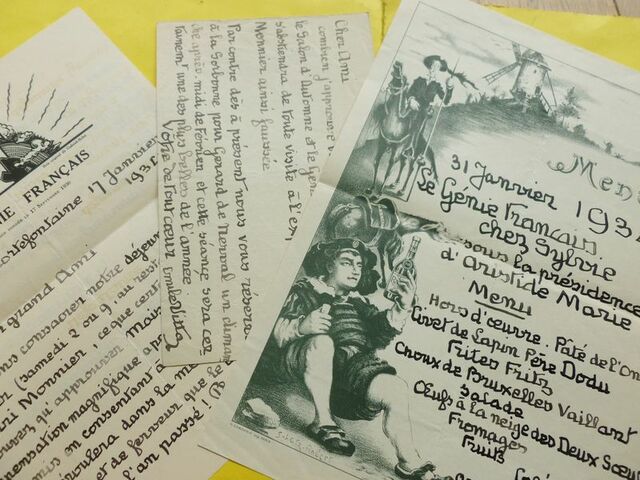 IE FRANÇAIS
17 Novembre 1930
ortefontaine 17 Janvier
193
grand Ami
ns consacrer notre déjeu
(samedi 2 ou 9, au res
ri Monnier ; ce que cert
ouvez qu'approuver. Mais
pensation magnifique a
mis en consentant a
oulera dans la
et de ferveur que
l'an passé !
Cher Ami
combien j'approuve v
le Salon d'Automne et le Gén
s'abstiendra de toute visite à l'ex
Monnier ainsi faussée.
Par contre dès à présent nous vous réserv
à la Sorbonne pour Gérard de Nerval un diman
che après-midi de Février et cette séance sera cer
tainement une des plus belles de l'année
Votre de tout cœur
Menu
31 Janvier 193
Le Génie Français
chez Sylvie
sous la présidence
d'Aristide Marie
Menu
Hors d'œuvre : Pâté de l'On
Civet de Lapin Père Dodu
Frites Frits
Choux de Bruxelles Vaillant
Salade
Œufs à la neige des Deux Sœur
Fromages
Fruits